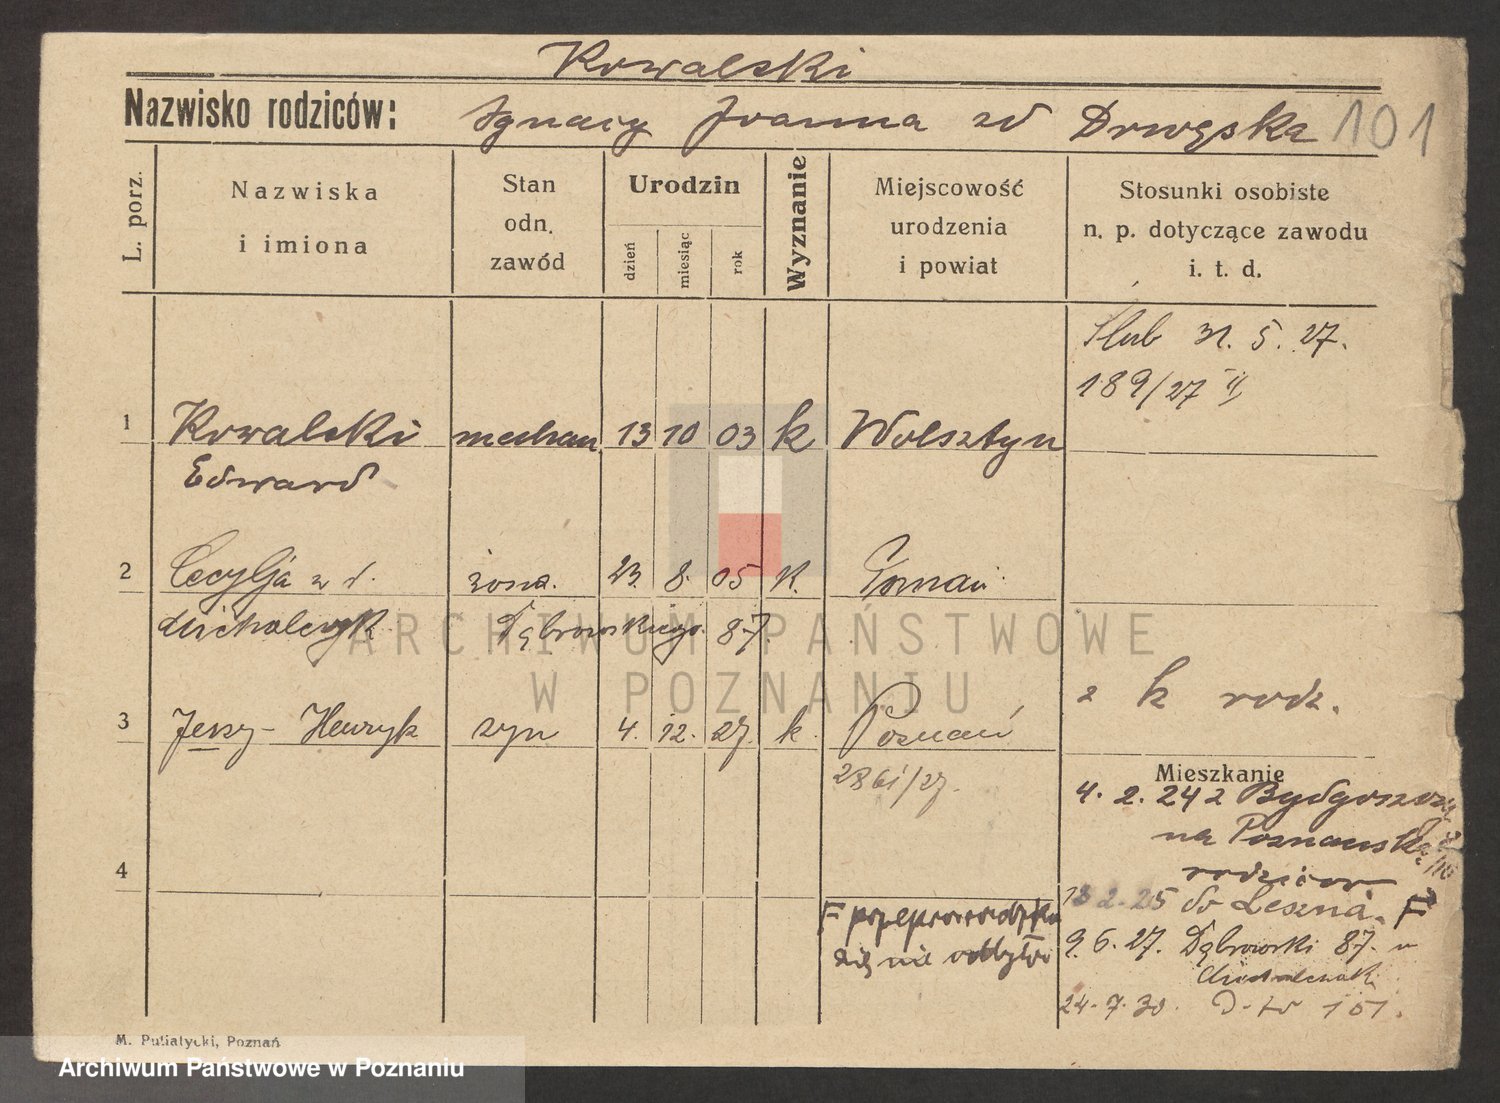 Kowalski
Nazwisko rodziców: Ignacy Joanna zd Drwęska 101
L. porz.
Nazwiska
i imiona
Stan
odn.
zawód
Urodzin
dzień
miesiąc
rok
Wyznanie
Miejscowość
urodzenia
i powiat
Stosunki osobiste
n. p. dotyczące zawodu
i. t. d.
Ślub 31. 5. 27.
189/27 II
1 Kowalski mechan 13 10 03 k Wolsztyn
Edward
2 Cecylja z d. żona. 23. 8. 05 k. Poznań
Michalczyk Dąbrowskiego 87.
z k rodz.
3 Jerzy-Henryk syn 4. 12. 27. k. Poznań
2861/27.
Mieszkanie
4. 2. 24 z Bydgoszczy
na Poznańską
rodziców
4
13 2. 25 do Leszna. F
F przeprowadzka
się nie odbyła
9. 6. 27. Dąbrowski 87. u
Michalczak
24. 7. 30. D-to 101.
M. Putiatycki, Poznań
ARCHIWUM PAŃSTWOWE
W POZNANIU
Archiwum Państwowe w Poznaniu